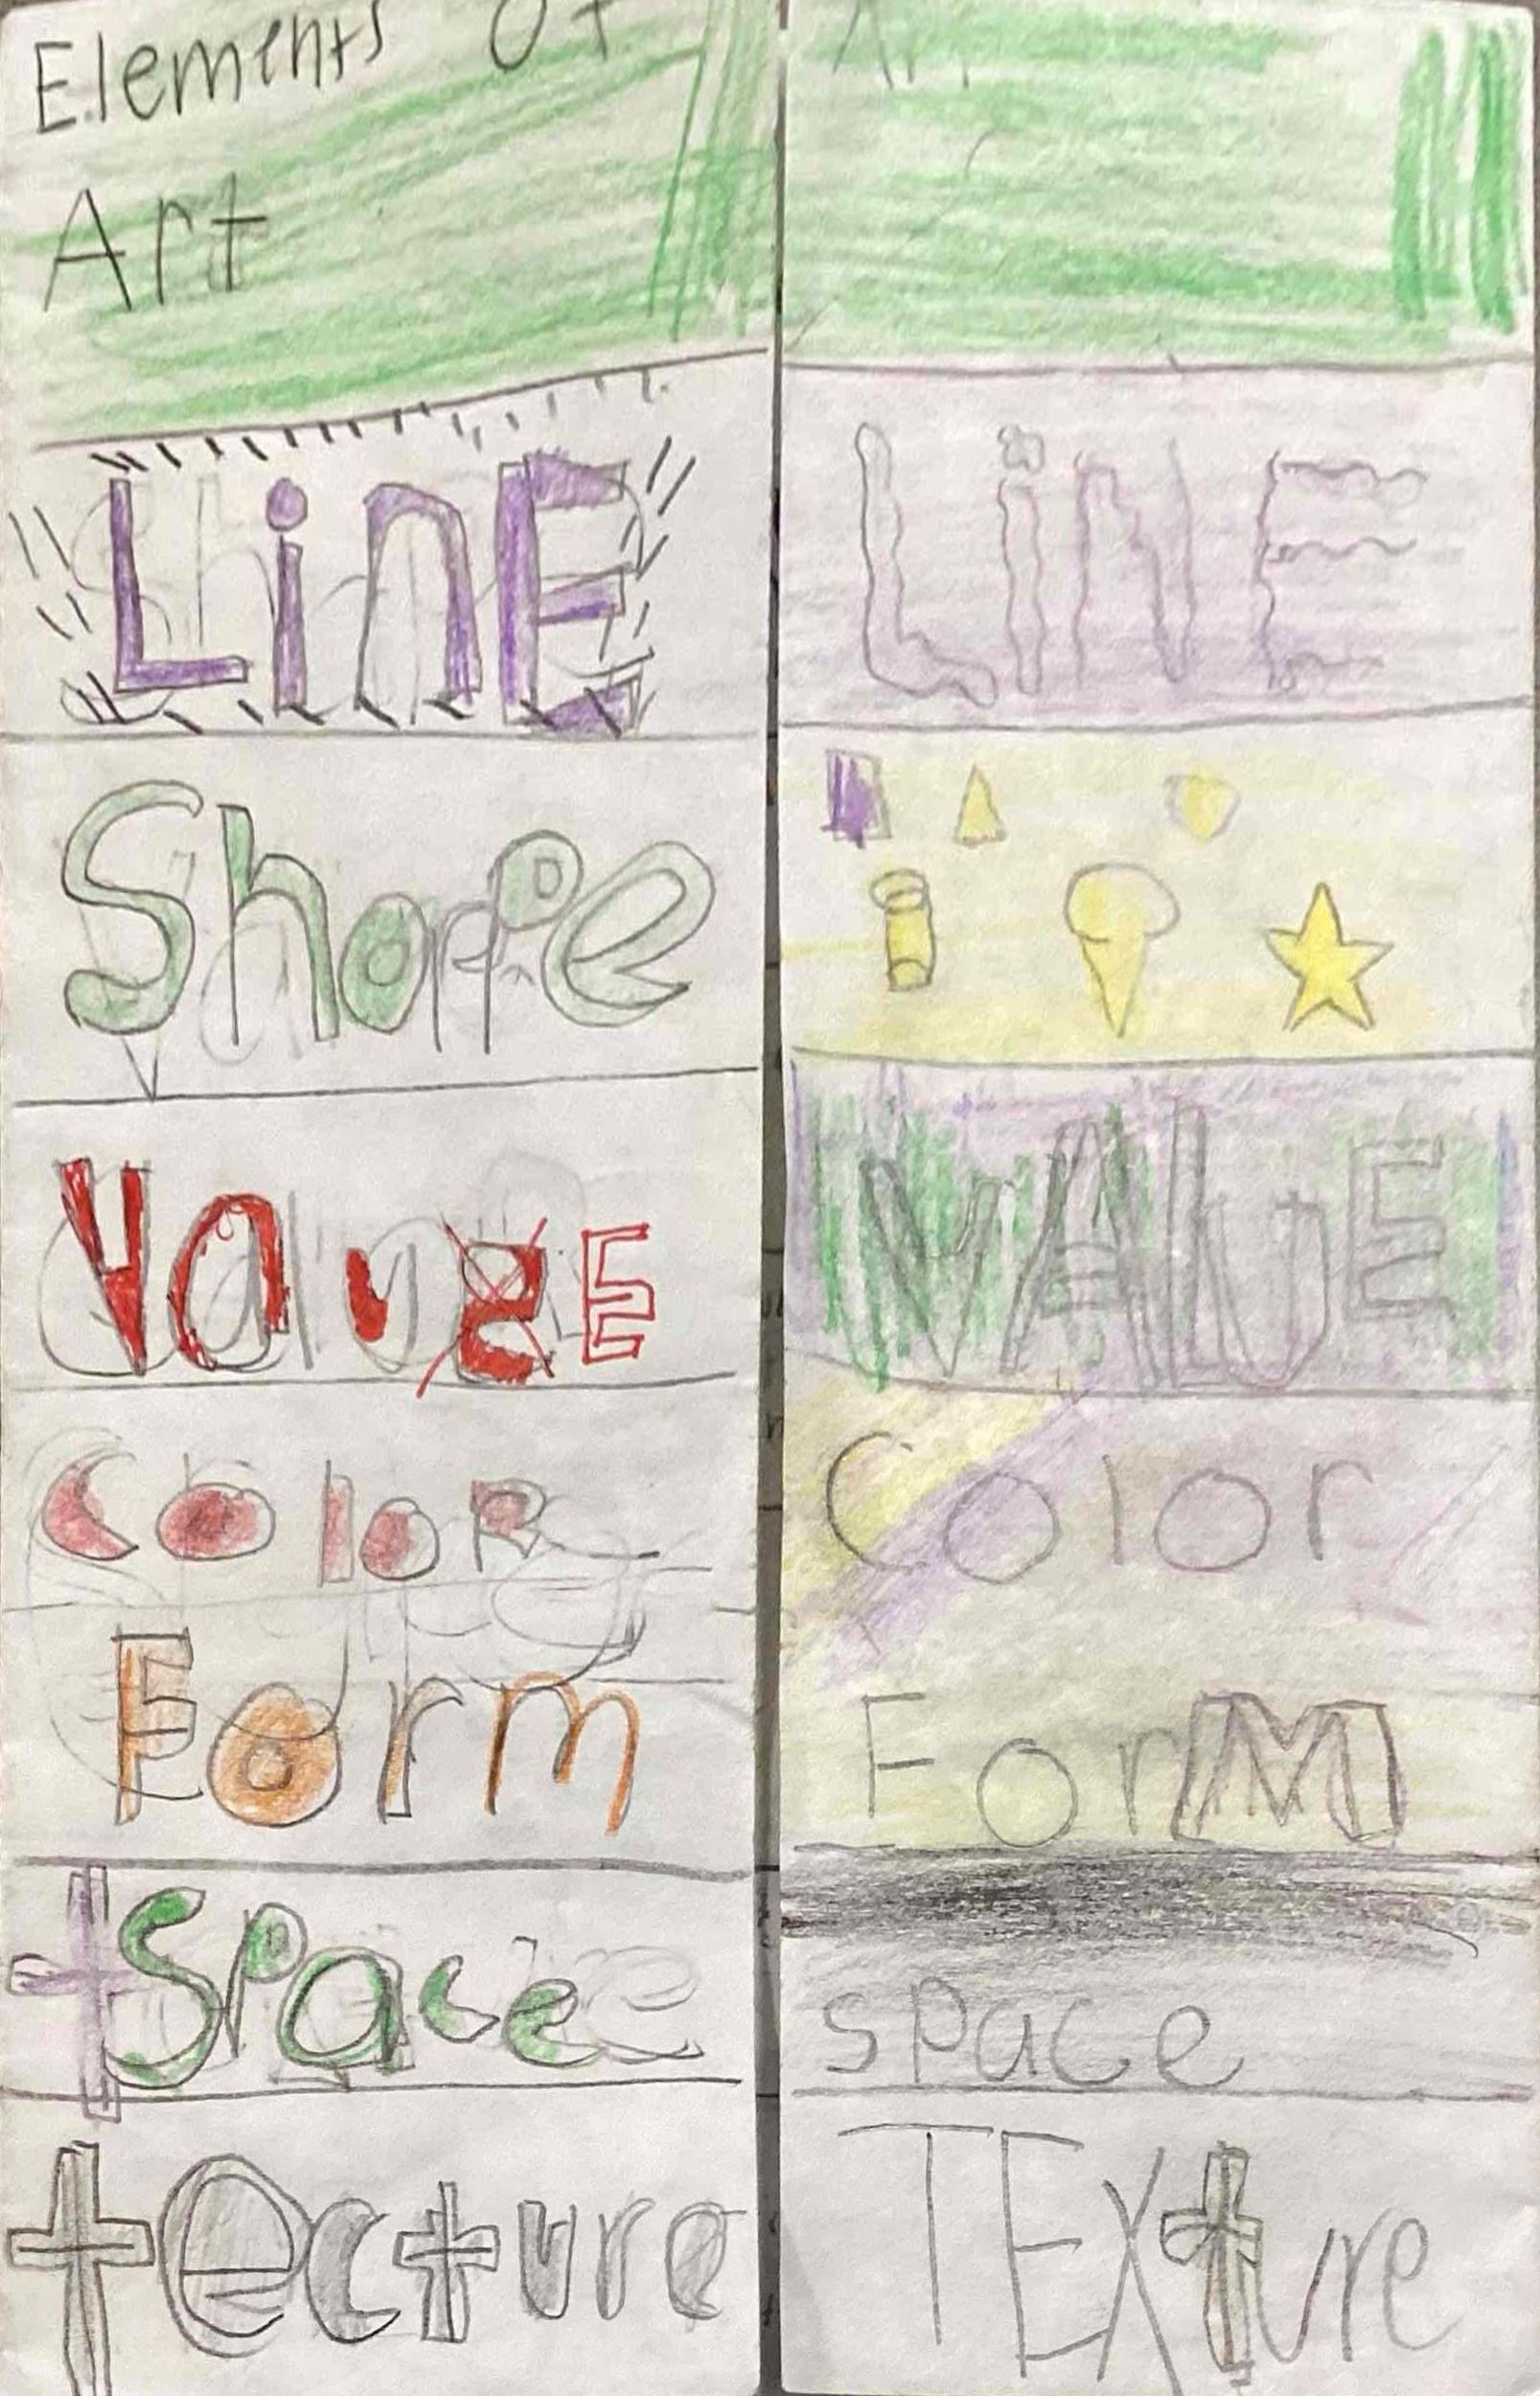 Elements Of
Art
LinE
Shape
ValuE
ColoR
Form
Space
tecture
Art
LiNE
VALUE
Color
ForM
space
TEXture